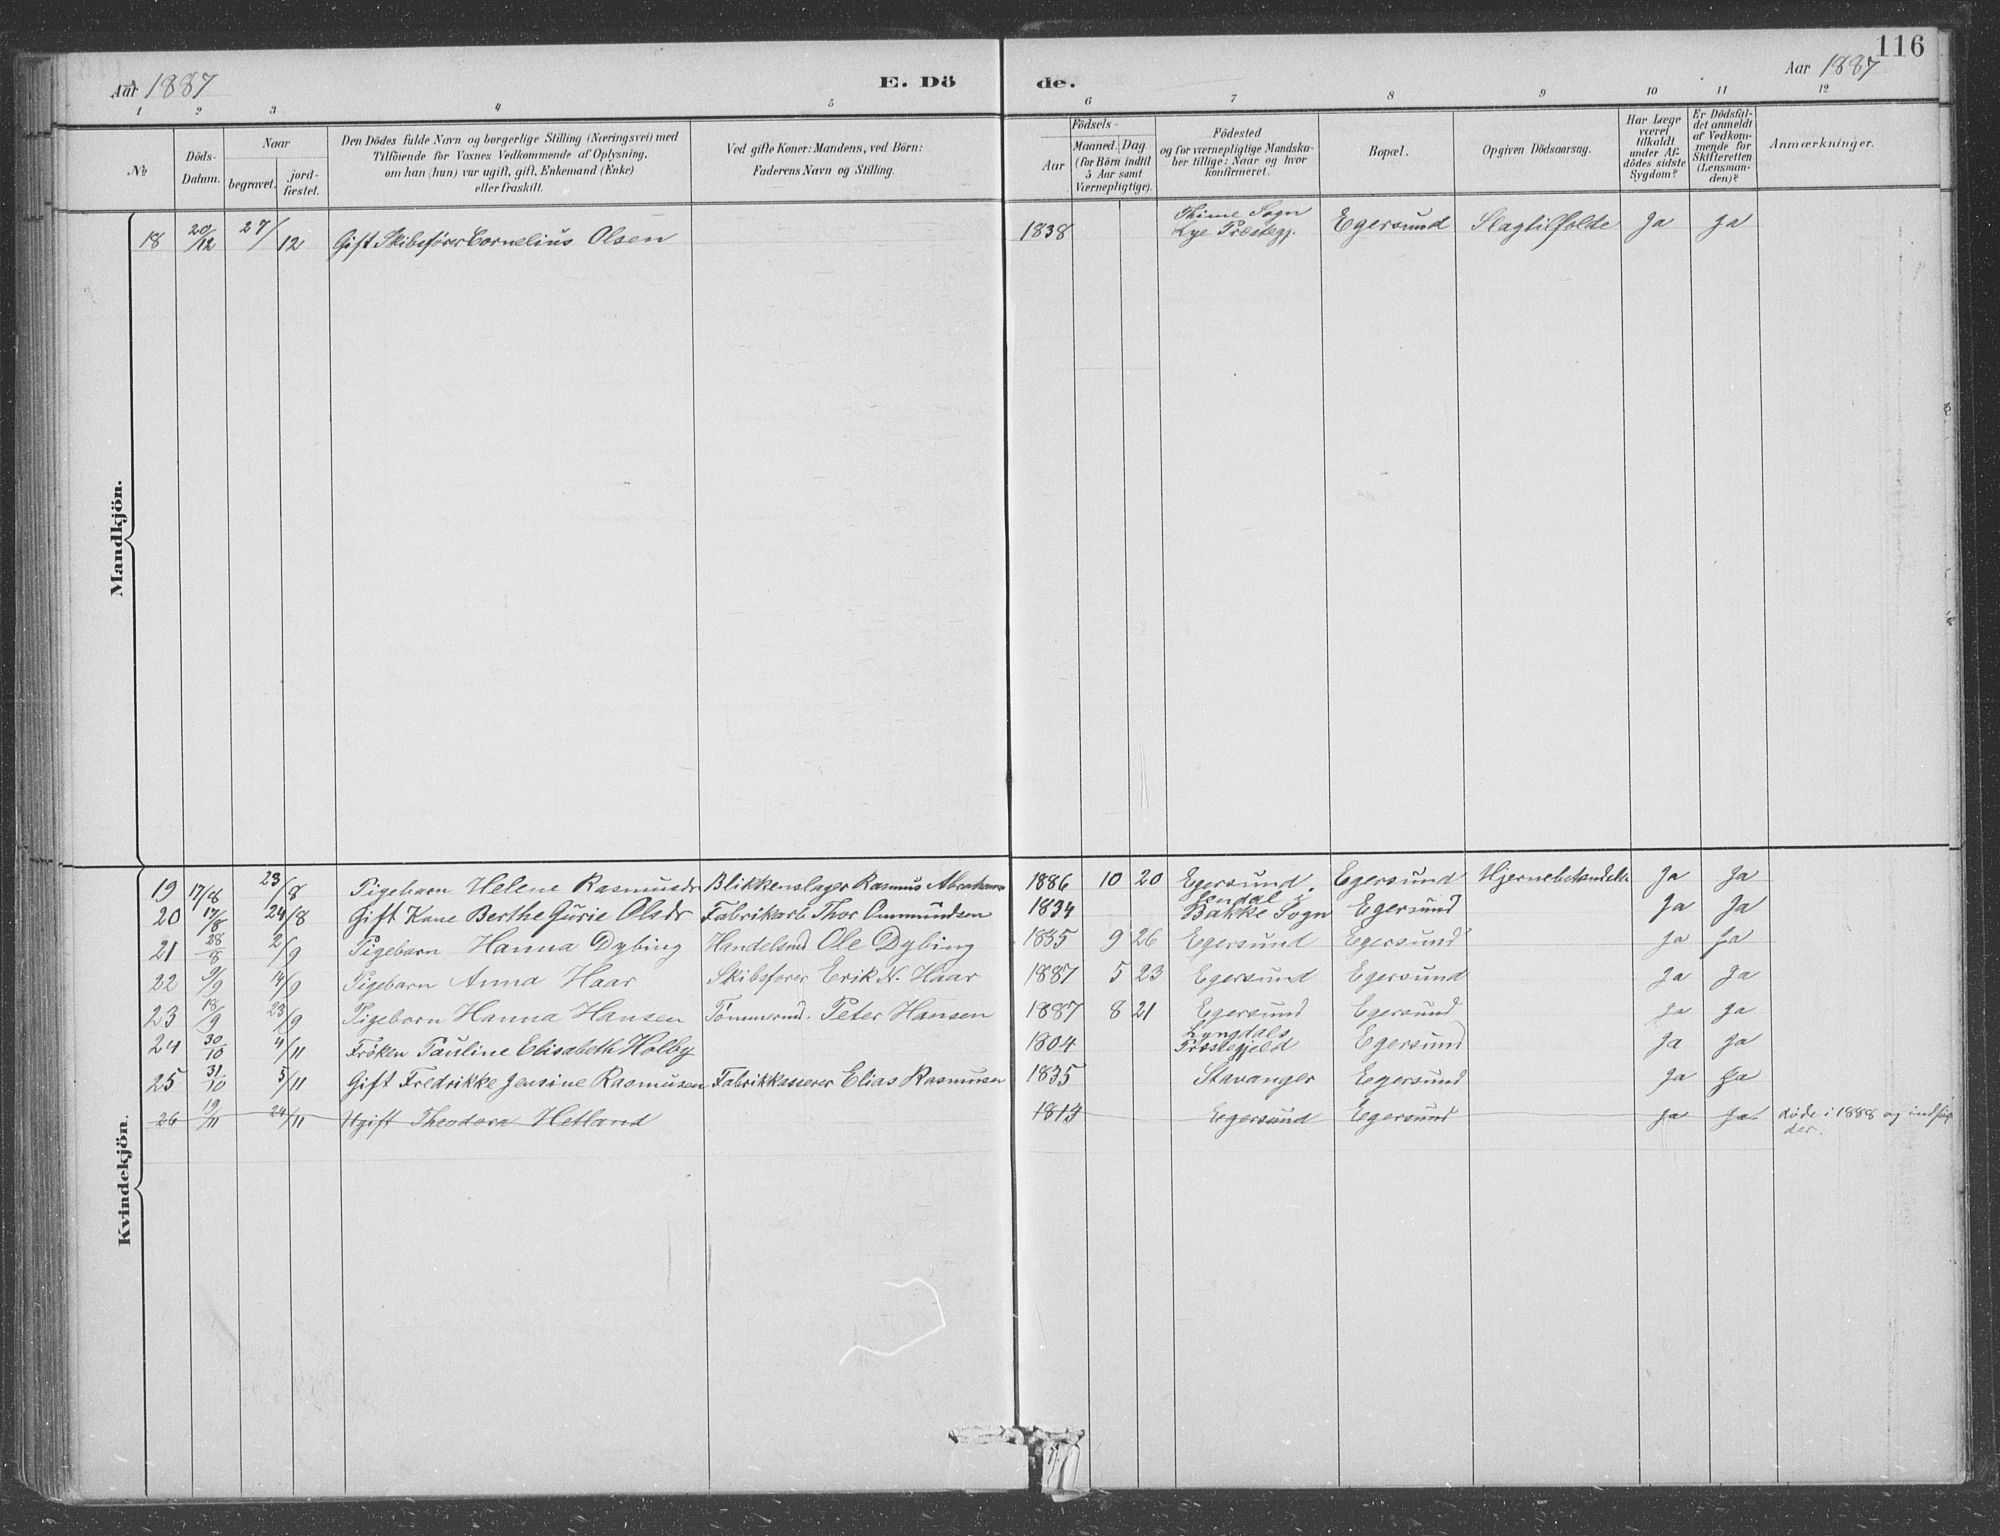 116
Aar 1887 E. Dö de. Aar 1887
1 2 3 4 5 6 7 8 9 10 11 12
No
Döds-
Datum.
Naar
begravet.
jord-
fæstet.
Den Dödes fulde Navn og borgerlige Stilling (Næringsvei) med
Tilföiende for Voxnes Vedkommende af Oplysning,
om han (hun) var ugift, gift, Enkemand (Enke)
eller fraskilt.
Ved gifte Koner: Mandens, ved Börn:
Faderens Navn og Stilling.
Födsels-
Aar
Maaned. Dag
(for Börn indtil
5 Aar samt
Værnepligtige).
Födested
og for værnepligtige Mandska-
ber tillige: Naar og hvor
konfirmeret.
Bopæl.
Opgiven Dödsaarsag.
Har Læge
været
tilkaldt
under Af-
dödes sidste
Sygdom?
Er Dödsfal-
det anmeldt
af Vedkom-
mende for
Skifteretten
(Lensman-
den)?
Anmærkninger.
Mandkjön.
18 20/12 27/12 Gift Skibsfører Cornelius Olsen 1838 Thime Sogn Lye Præstegj. Egersund Slagtilfælde Ja Ja
Kvindekjön.
19 17/8 23/8 Pigebarn Helene Rasmusdr Blikkenslager Rasmus Abrahams 1886 10 20 Egersund. Egersund Hjernebetændelse Ja Ja
20 17/8 24/8 Gift Kone Berthe Gurie Olsdr Fabrikarb Thor Ommundsen 1834 Bakke Sogn Egersund Ja Ja
21 28/8 2/9 Pigebarn Hanna Dybing Handelsmd Ole Dybing 1885 9 26 Egersund Egersund Ja Ja
22 9/9 14/9 Pigebarn Anna Haar Skibsfører Erik N. Haar 1887 5 23 Egersund Egersund Ja Ja
23 18/9 23/9 Pigebarn Hanna Hansen Tømmermd. Peter Hansen 1887 8 21 Egersund Egersund Ja Ja
24 30/10 4/11 Frøken Pauline Elisabeth Holby 1804 Lyngdals Præstegjeld Egersund Ja Ja
25 31/10 5/11 Gift Fredrikke Jensine Rasmusen Fabrikkasserer Elias Rasmusen 1835 Stavanger Egersund Ja Ja
26 19/11 24/11 Ugift Theodora Hetland 1813 Egersund Egersund Ja Ja. døde i 1888 og indføres
der.